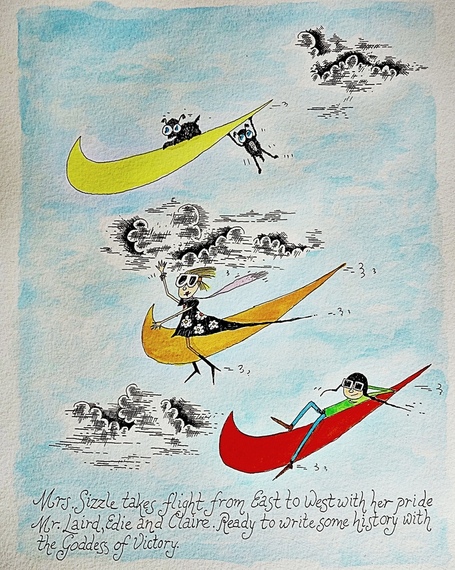 Mrs. Sizzle takes flight from East to West with her pride
Mr. Laird, Edie and Claire. Ready to write some history with
the Goddess of Victory.